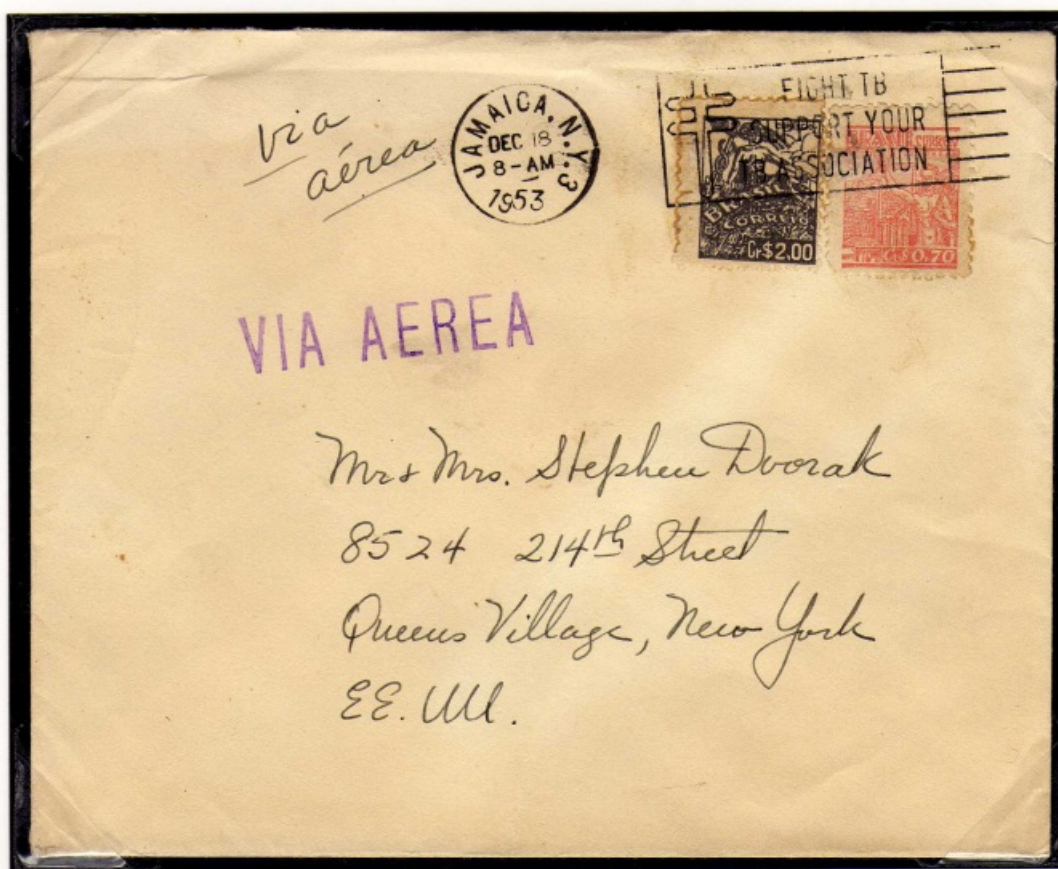 via
aérea
JAMAICA, N.Y. 3
DEC 18
8-AM
1953
FIGHT TB
SUPPORT YOUR
TB ASSOCIATION
BRASIL
CORREIO
Cr$2,00
Cr$0,70
VIA AEREA
Mr & Mrs. Stephen Dvorak
8524 214th Street
Queens Village, New York
EE. UU.